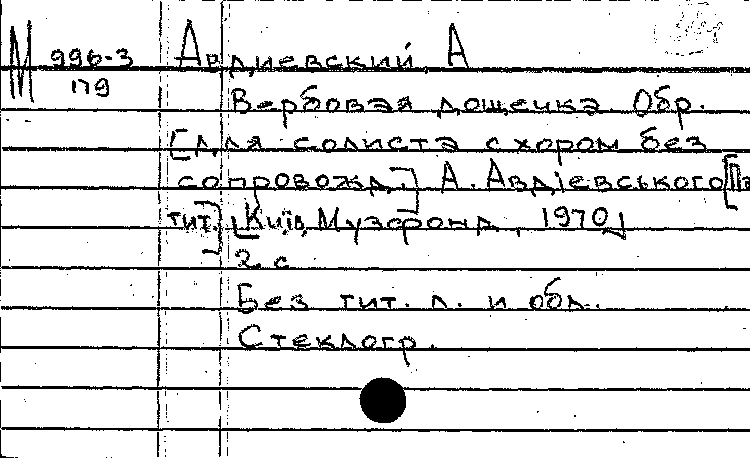 М 996-3 Авдиевский, А
179
Вербовая дощечка. Обр.
[для солиста с хором без
сопровожд.] А. Авдіевського [Па
тит.] [Київ, Музфонд, 1970]
2 с
Без тит. л. и обл.
Стеклогр.